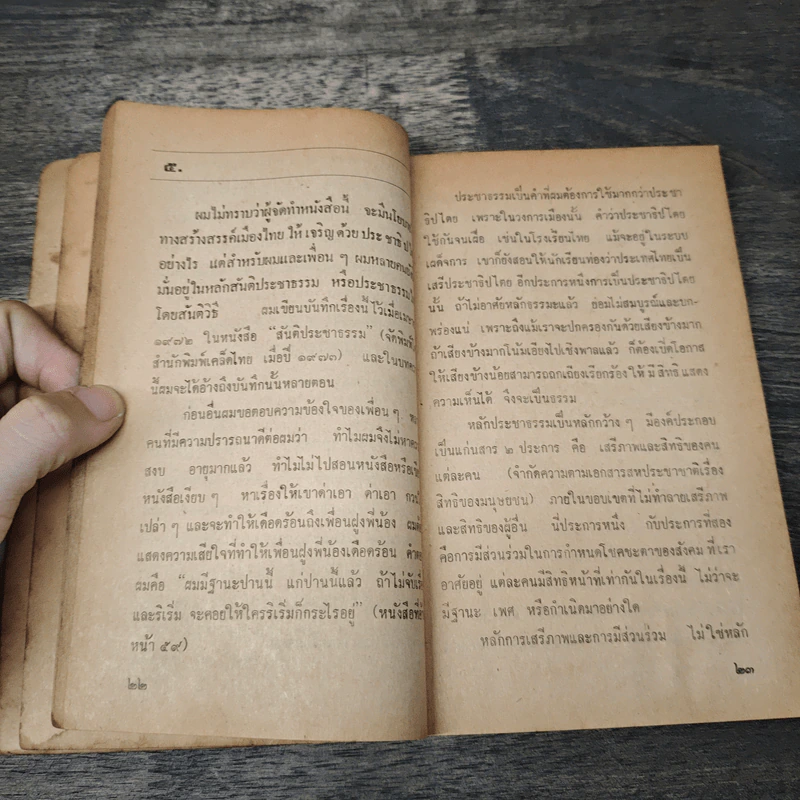 ๕.
ผมไม่ทราบว่าผู้จัดทำหนังสือนี้ จะมีนโยบาย
ทางสร้างสรรค์เมืองไทย ให้ เจริญ ด้วย ประ ชาธิ ป
อย่างไร แต่สำหรับผมและเพื่อน ๆ ผมหลายคน
มั่นอยู่ในหลักสันติประชาธรรม หรือประชาธรรม
โดยสันติวิธี ผมเขียนบันทึกเรื่องนี้ไว้เมื่อ
๑๙๗๒ ในหนังสือ “สันติประชาธรรม” (จัดพิมพ์
สำนักพิมพ์เคล็ดไทย เมื่อปี ๑๙๗๓) และในบท
นี้ผมจะได้อ้างถึงบันทึกนั้นหลายตอน
ก่อนอื่นผมขอตอบความข้องใจของเพื่อน ๆ
คนที่มีความปรารถนาดีต่อผมว่า ทำไมผมจึงไม่หา
สงบ อายุมากแล้ว ทำไมไม่ไปสอนหนังสือหรือ
หนังสือเงียบ ๆ หาเรื่องให้เขาด่าเอา ด่าเอา
เปล่า ๆ และจะทำให้เดือดร้อนถึงเพื่อนฝูงพี่น้อง ผม
แสดงความเสียใจที่ทำให้เพื่อนฝูงพี่น้องเดือดร้อน
ผมคือ “ผมมีฐานะปานนี้ แก่ปานนี้แล้ว ถ้าไม่จับ
และริเริ่ม จะคอยให้ใครริเริ่มก็กระไรอยู่” (หนังสือที่
หน้า ๕๙)
๒๒
ประชาธรรมเป็นคำที่ผมต้องการใช้มากกว่าประชา
ธิปไตย เพราะในวงการเมืองนั้น คำว่าประชาธิปไตย
ใช้กันจนเฝือ เช่นในโรงเรียนไทย แม้จะอยู่ในระบบ
เผด็จการ เขาก็ยังสอนให้นักเรียนท่องว่าประเทศไทยเป็น
เสรีประชาธิปไตย อีกประการหนึ่งการเป็นประชาธิปไตย
นั้น ถ้าไม่อาศัยหลักธรรมะแล้ว ย่อมไม่สมบูรณ์และบก-
พร่องแน่ เพราะถึงแม้เราจะปกครองกันด้วยเสียงข้างมาก
ถ้าเสียงข้างมากโน้มเอียงไปเชิงพาลแล้ว ก็ต้องเปิดโอกาส
ให้เสียงข้างน้อยสามารถถกเถียงเรียกร้อง ให้ มี สิทธิ แสดง
ความเห็นได้ จึงจะเป็นธรรม
หลักประชาธรรมเป็นหลักกว้าง ๆ มีองค์ประกอบ
เป็นแก่นสาร ๒ ประการ คือ เสรีภาพและสิทธิของคน
แต่ละคน (จำกัดความตามเอกสารสหประชาชาติเรื่อง
สิทธิของมนุษยชน) ภายในขอบเขตที่ไม่ทำลายเสรีภาพ
และสิทธิของผู้อื่น นี่ประการหนึ่ง กับประการที่สอง
คือการมีส่วนร่วมในการกำหนดโชคชะตาของสังคม ที่ เรา
อาศัยอยู่ แต่ละคนมีสิทธิหน้าที่เท่ากันในเรื่องนี้ ไม่ว่าจะ
มีฐานะ เพศ หรือกำเนิดมาอย่างใด
หลักการเสรีภาพและการมีส่วนร่วม ไม่ใช่หลัก
๒๓